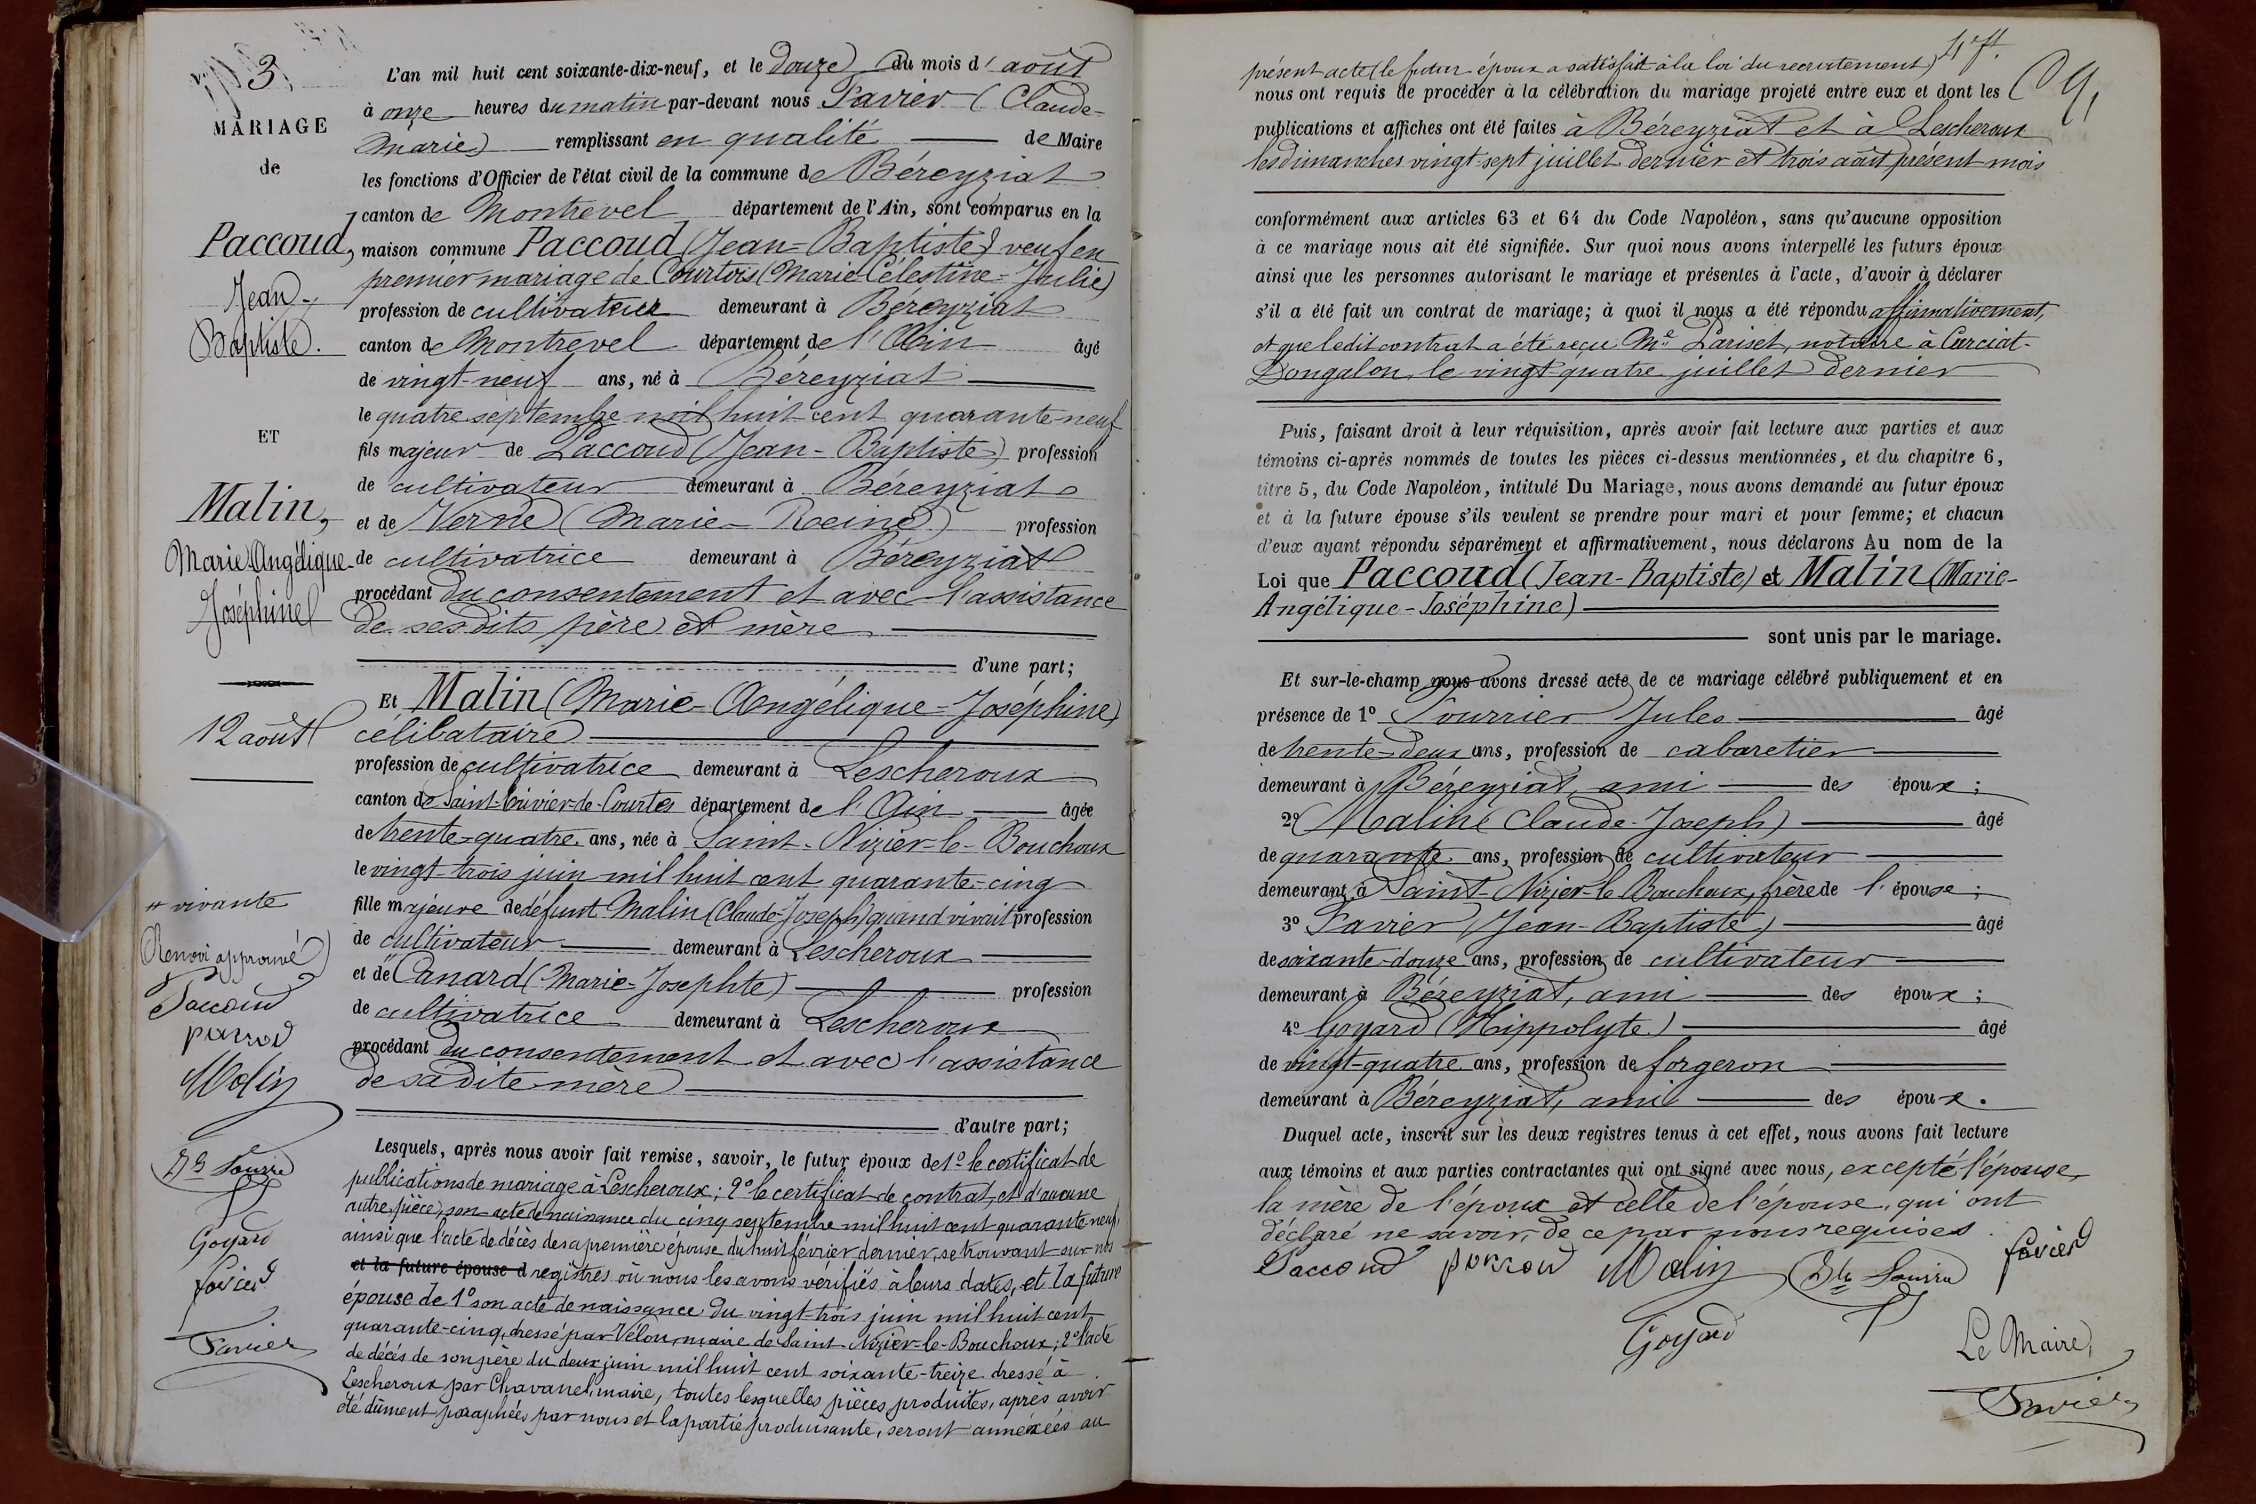 N° 3.
MARIAGE
de
Paccoud,
Jean-
Baptiste.
ET
Malin,
Marie-Angélique-
Joséphine
12 août
" vivante
Renvoi approuvé
Paccoud
Malin
Goyard
favier
Favier
L'an mil huit cent soixante-dix-neuf, et le douze du mois d'août
à onze heures du matin par-devant nous Favier (Claude-
Marie) remplissant en qualité de Maire
les fonctions d'Officier de l'état civil de la commune de Béreyziat
canton de Montrevel département de l'Ain, sont comparus en la
maison commune Paccoud (Jean-Baptiste) veuf en
premier mariage de Courtois (Marie-Célestine-Julie)
profession de cultivateur demeurant à Béreyziat
canton de Montrevel département de l'Ain âgé
de vingt-neuf ans, né à Béreyziat
le quatre septembre mil huit cent quarante-neuf
fils majeur de Paccoud (Jean-Baptiste) profession
de cultivateur demeurant à Béreyziat
et de Verne (Marie-Reine) profession
de cultivatrice demeurant à Béreyziat
procédant du consentement et avec l'assistance
de ses dits père et mère
d'une part;
Et Malin (Marie-Angélique-Joséphine)
célibataire
profession de cultivatrice demeurant à Lescheroux
canton de Saint-Trivier-de-Courtes département de l'Ain âgée
de trente-quatre ans, née à Saint-Nizier-le-Bouchoux
le vingt-trois juin mil huit cent quarante-cinq
fille majeure de défunt Malin (Claude-Joseph) quand vivait profession
de cultivateur demeurant à Lescheroux
et de " Canard (Marie-Josephte) profession
de cultivatrice demeurant à Lescheroux
procédant du consentement et avec l'assistance
de sa dite mère
d'autre part;
Lesquels, après nous avoir fait remise, savoir, le futur époux de 1° le certificat de
publications de mariage à Lescheroux; 2° le certificat de contrat, et d'aucune
autre pièce, son acte de naissance du cinq septembre mil huit cent quarante-neuf,
ainsi que l'acte de décès de sa première épouse du huit février dernier, se trouvant sur nos
et la future épouse d registres où nous les avons vérifiés à leurs dates, et la future
épouse de 1° son acte de naissance du vingt-trois juin mil huit cent
quarante-cinq, dressé par Vélon, maire de Saint-Nizier-le-Bouchoux; 2° l'acte
de décés de son père du deux juin mil huit cent soixante-treize dressé à
Lescheroux par Chavanel, maire, toutes lesquelles pièces produites, après avoir
été dûment paraphées par nous et la partie produisante, seront annéxées au
présent acte (le futur époux a satisfait à la loi du recrutement)
nous ont requis de procéder à la célébration du mariage projeté entre eux et dont les
publications et affiches ont été faites à Béreyziat et à Lescheroux
les dimanches vingt-sept juillet dernier et trois août présent mois
conformément aux articles 63 et 64 du Code Napoléon, sans qu'aucune opposition
à ce mariage nous ait été signifiée. Sur quoi nous avons interpellé les futurs époux
ainsi que les personnes autorisant le mariage et présentes à l'acte, d'avoir à déclarer
s'il a été fait un contrat de mariage; à quoi il nous a été répondu affirmativement,
et que ledit contrat a été reçu Me Pariset, notaire à Curciat-
Dongalon, le vingt-quatre juillet dernier
Puis, faisant droit à leur réquisition, après avoir fait lecture aux parties et aux
témoins ci-après nommés de toutes les pièces ci-dessus mentionnées, et du chapitre 6,
titre 5, du Code Napoléon, intitulé Du Mariage, nous avons demandé au futur époux
et à la future épouse s'ils veulent se prendre pour mari et pour femme; et chacun
d'eux ayant répondu séparément et affirmativement, nous déclarons Au nom de la
Loi que Paccoud (Jean-Baptiste) et Malin (Marie-
Angélique-Joséphine)
sont unis par le mariage.
Et sur-le-champ nous avons dressé acte de ce mariage célébré publiquement et en
présence de 1° Fourrier Jules âgé
de trente-deux ans, profession de cabaretier
demeurant à Béreyziat, ami des époux;
2° Malin (Claude-Joseph) âgé
de quarante ans, profession de cultivateur
demeurant à Saint-Nizier-le-Bouchoux, frère de l'épouse;
3° Favier (Jean-Baptiste) âgé
de soixante-douze ans, profession de cultivateur
demeurant à Béreyziat, ami des époux;
4° Goyard (Hippolyte) âgé
de vingt-quatre ans, profession de forgeron
demeurant à Béreyziat, ami des époux.
Duquel acte, inscrit sur les deux registres tenus à cet effet, nous avons fait lecture
aux témoins et aux parties contractantes qui ont signé avec nous, excepté l'épouse,
la mère de l'époux et celle de l'épouse, qui ont
déclaré ne savoir, de ce par nous requises.
Paccoud Malin favier
Goyard
Le Maire,
Favier